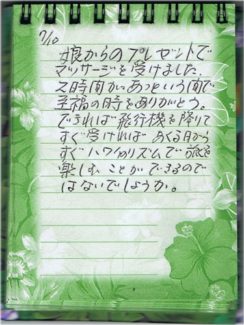 7/10
娘からのプレゼントで
マッサージを受けました。
2時間があっという間で
至福の時をありがとう。
できれば飛行機を降りて
すぐ受ければあくる日から
すぐハワイのリズムで旅を
楽しむことができるので
はないでしょうか。